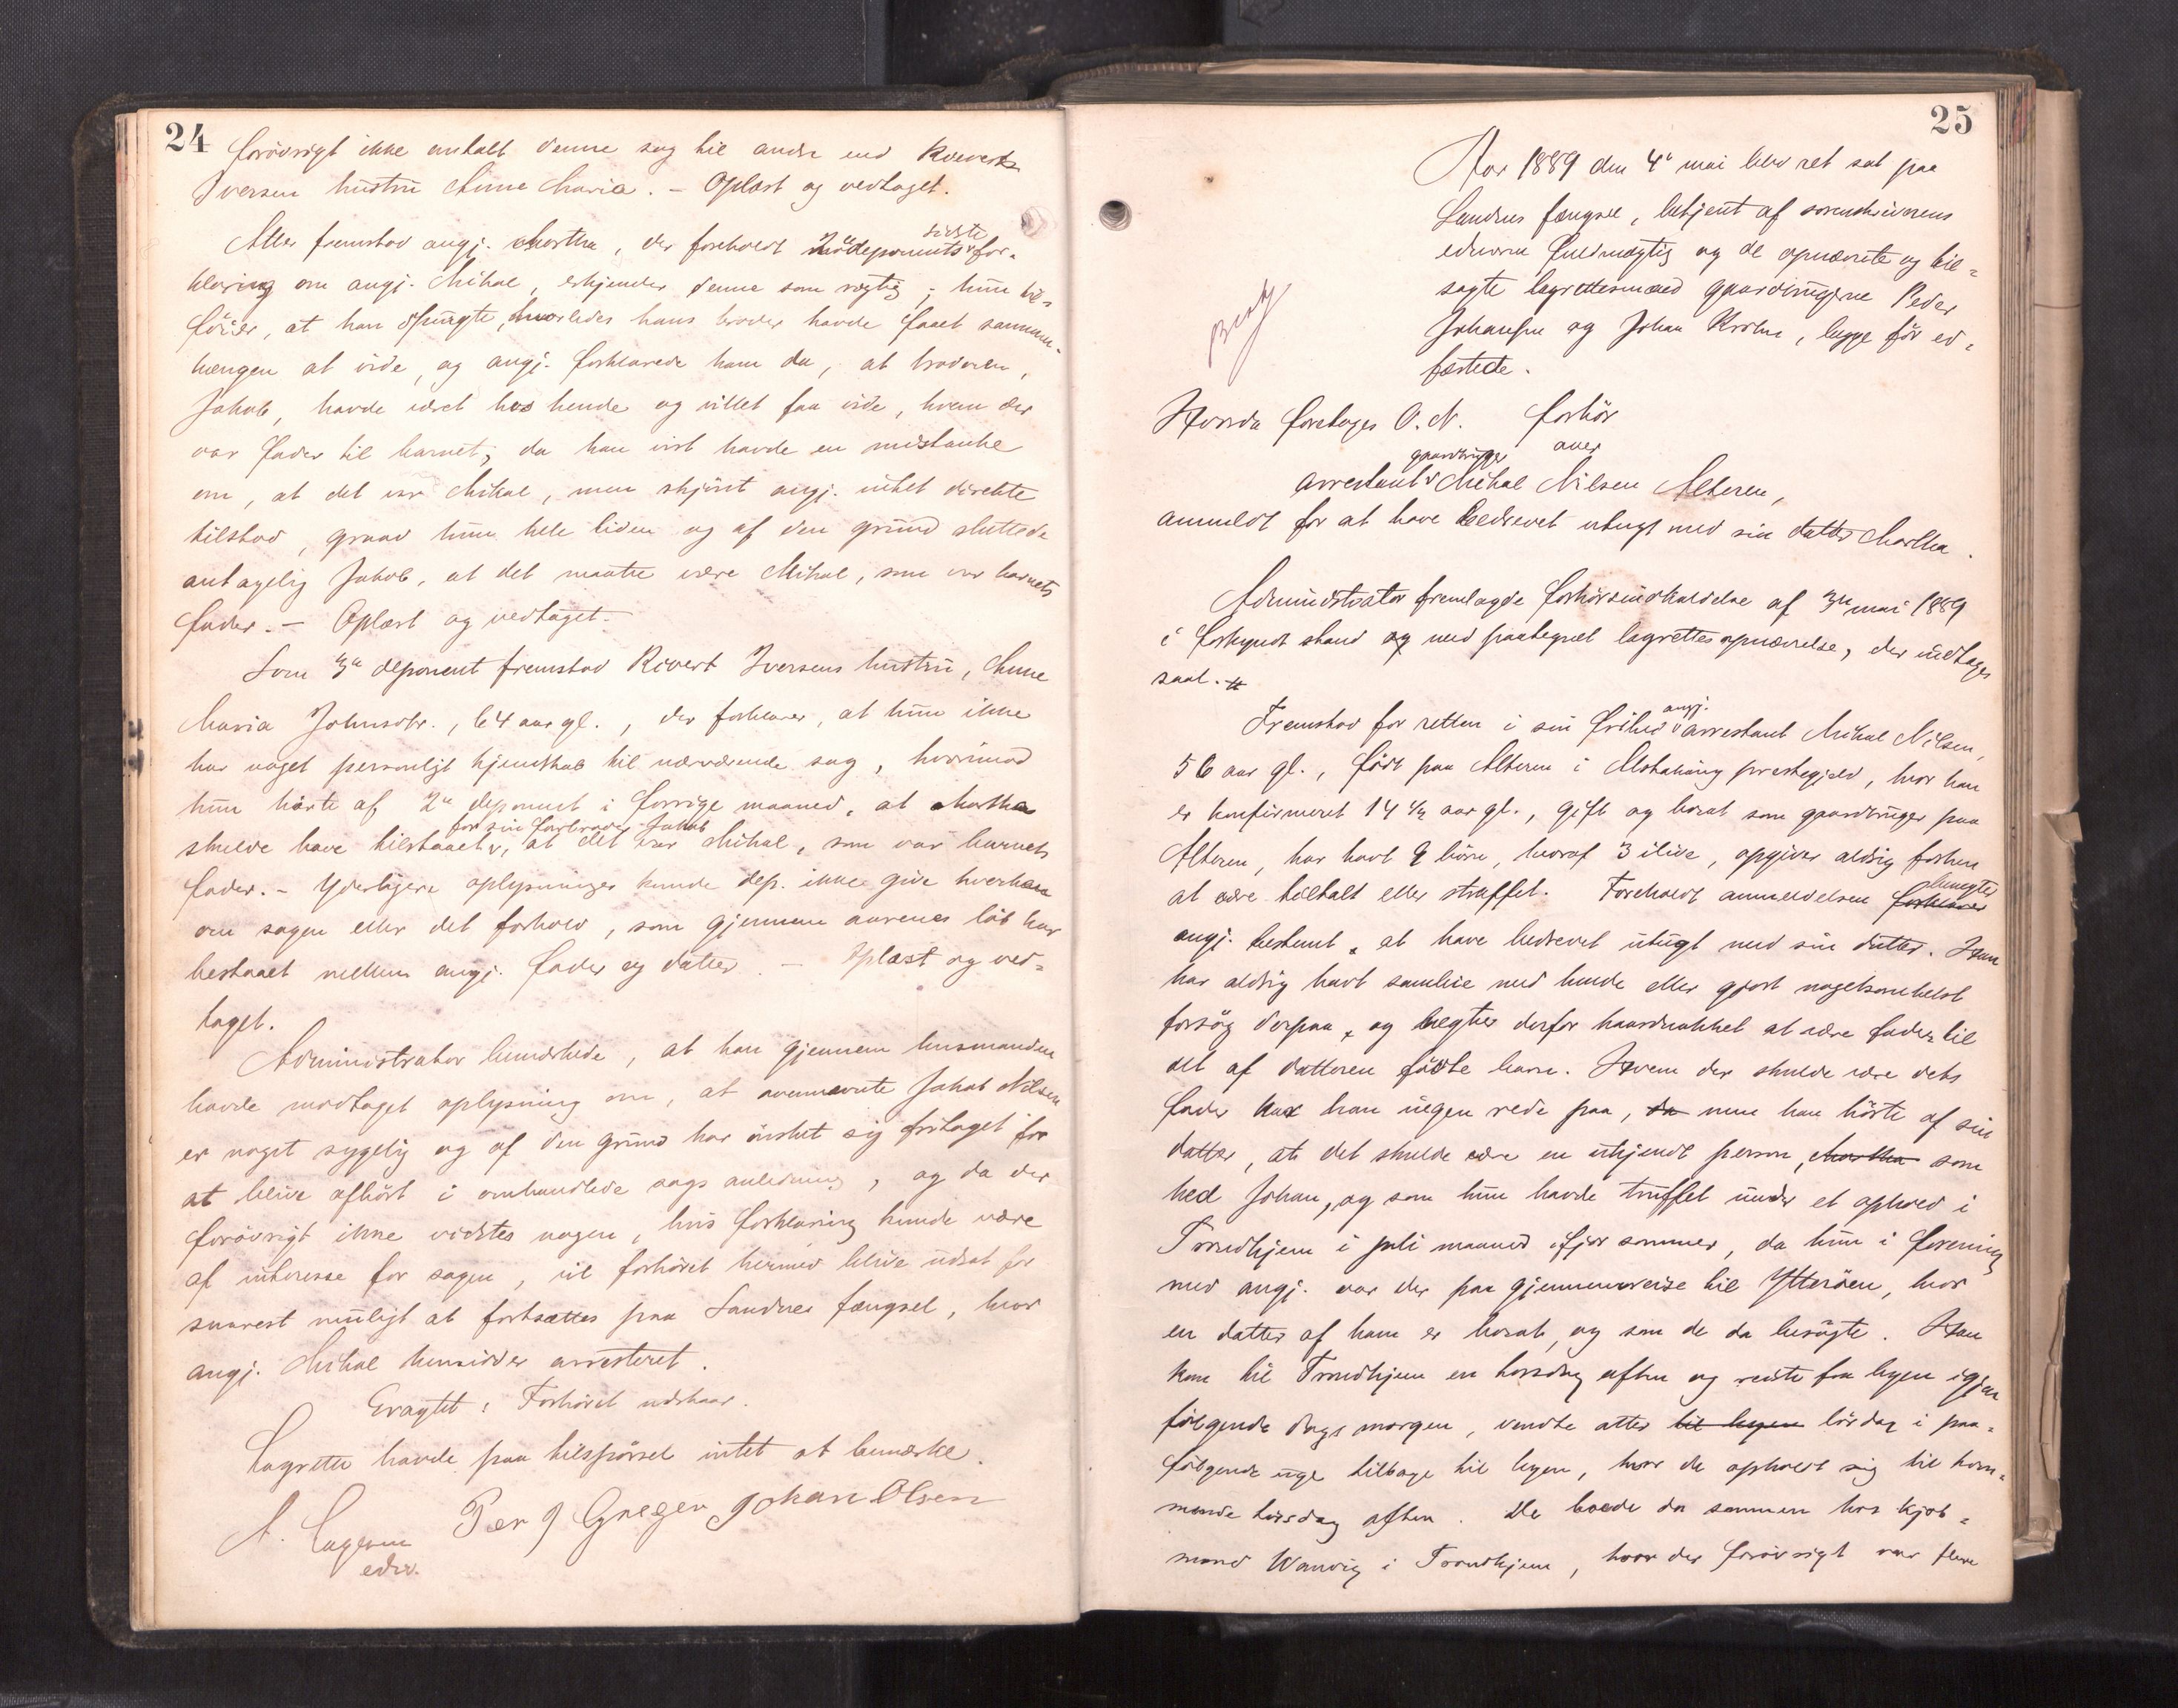 24
forøvrigt ikke omtalt denne sag til andre end Rivert
Iversens hustru Anne Maria. – Oplæst og vedtaget.
Atter fremstod angj. Martha, der foreholdt 2den deponents sidste for-
klaring om angj. Mikal, erkjender denne som rigtig; hun til-
føier, at han spurgte, hvorledes hans broder havde faaet sammen-
hængen at vide, og angj. forklarede ham da, at broderen,
Jakob, havde været hos hende og villet faa vide, hvem der
var fader til barnet; da han vist havde en mistanke
om, at det var Mikal, men skjønt angj. intet direkte
tilstod, graad hun hele tiden og af den grund sluttede
antagelig Jakob, at det maatte være Mikal, som var barnets
fader. – Oplæst og vedtaget.
Som 3de deponent fremstod Rivert Iversens hustru, Anne
Maria Johnsdtr., 64 aar gl., der forklarer, at hun ikke
har noget personligt kjendskab til nærværende sag, hvorimod
hun hørte af 2den deponent i forrige maaned, at Martha
for sin farbroder Jakob
skulde have tilstaaet, at det var Mikal, som var barnets
fader. – Yderligere oplysninger kunde dep. ikke give hverken
om sagen eller det forhold, som gjennem aarenes løb har
bestaaet mellem angj. fader og datter. – Oplæst og ved-
taget.
Administrator bemærkede, at han gjennem lensmanden
havde modtaget oplysning om, at ovennævnte Jakob Nilsen
er noget sygelig og af den grund har ønsket sig fritaget for
at blive afhørt i omhandlede sags anledning, og da der
forøvrigt ikke vidstes nogen, hvis forklaring kunde være
af interesse for sagen, vil forhøret hermed blive udsat for
snarest muligt at fortsættes paa Sandnes fængsel, hvor
angj. Mikal hensidder arresteret.
Eragtet: Forhøret udstaar.
Lagrette havde paa tilspørsel intet at bemærke.
Per J Greger Johan Olsen
edsv.
25
Aar 1889 den 4de mai blev ret sat paa
Sandnes fængsel, betjent af sorenskriverens
edsvorne fuldmægtig og de opnævnte og til-
sagte lagrettesmænd gaardbrugerne Peder
Johansen og Johan Krohn, begge før ed-
fæstede.
Hvorda foretoges O. N. forhør
over
gaardbruger
arrestant Mikal Nilsen Alteren,
anmeldt for at have bedrevet utugt med sin datter Martha.
Administrator fremlagde forhørsindkaldelse af 3die mai 1889
i forkyndt stand og med paategnet lagrettesopnævnelse, der indtages
saal.
Fremstod for retten i sin frihed angj. arrestant Mikal Nilsen,
56 aar gl., født paa Alteren i Alstahaug prestegjeld, hvor han
er konfirmeret 14 ½ aar gl., gift og bosat som gaardbruger paa
Alteren, har havt 9 børn, hvoraf 3 ilive, opgiver aldrig forhen
at være tiltalt eller straffet. Foreholdt anmeldelsen forklarer benegter
angj. bestemt at have bedrevet utugt med sin datter. Han
har aldrig havt samleie med hende eller gjort nogetsomhelst
forsøg derpaa, og negter derfor haardnakket at være fader til
det af datteren fødte barn. Hvem der skulde være dets
fader har han ingen rede paa, da men han hørte af sin
datter, at det skulde være en ukjendt person, Martha som
hed Johan, og som hun havde truffet under et ophold i
Trondhjem i juli maaned ifjor sommer, da hun i forening
med angj. var der paa gjennemreise til Ytterøen, hvor
en datter af ham er bosat, og som de da besøgte. Han
kom til Trondhjem en torsdag aften og reiste fra byen igjen
følgende dags morgen, vendte atter til byen lørdag i paa-
følgende uge tilbage til byen, hvor de opholdt sig til kom-
mende tirsdag aften. De boede da sammen hos kjøb-
mand Wanvig i Trondhjem, hvor der forøvrigt var flere